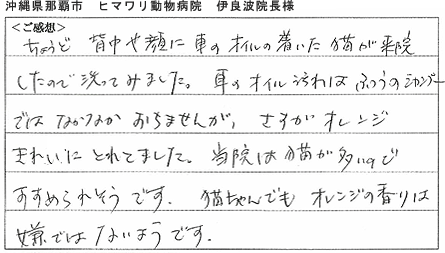 沖縄県那覇市　ヒマワリ動物病院　伊良波院長様
＜ご感想＞
ちょうど　背中や顔に車のオイルの着いた猫が来院
したので洗ってみました。車のオイル汚れはふつうのシャンプー
では なかなか おちませんが、さすが オレンジ
きれいに とれてました。当院は猫が多いので
おすすめられそうです。猫ちゃんでも オレンジの香りは
嫌ではないようです。